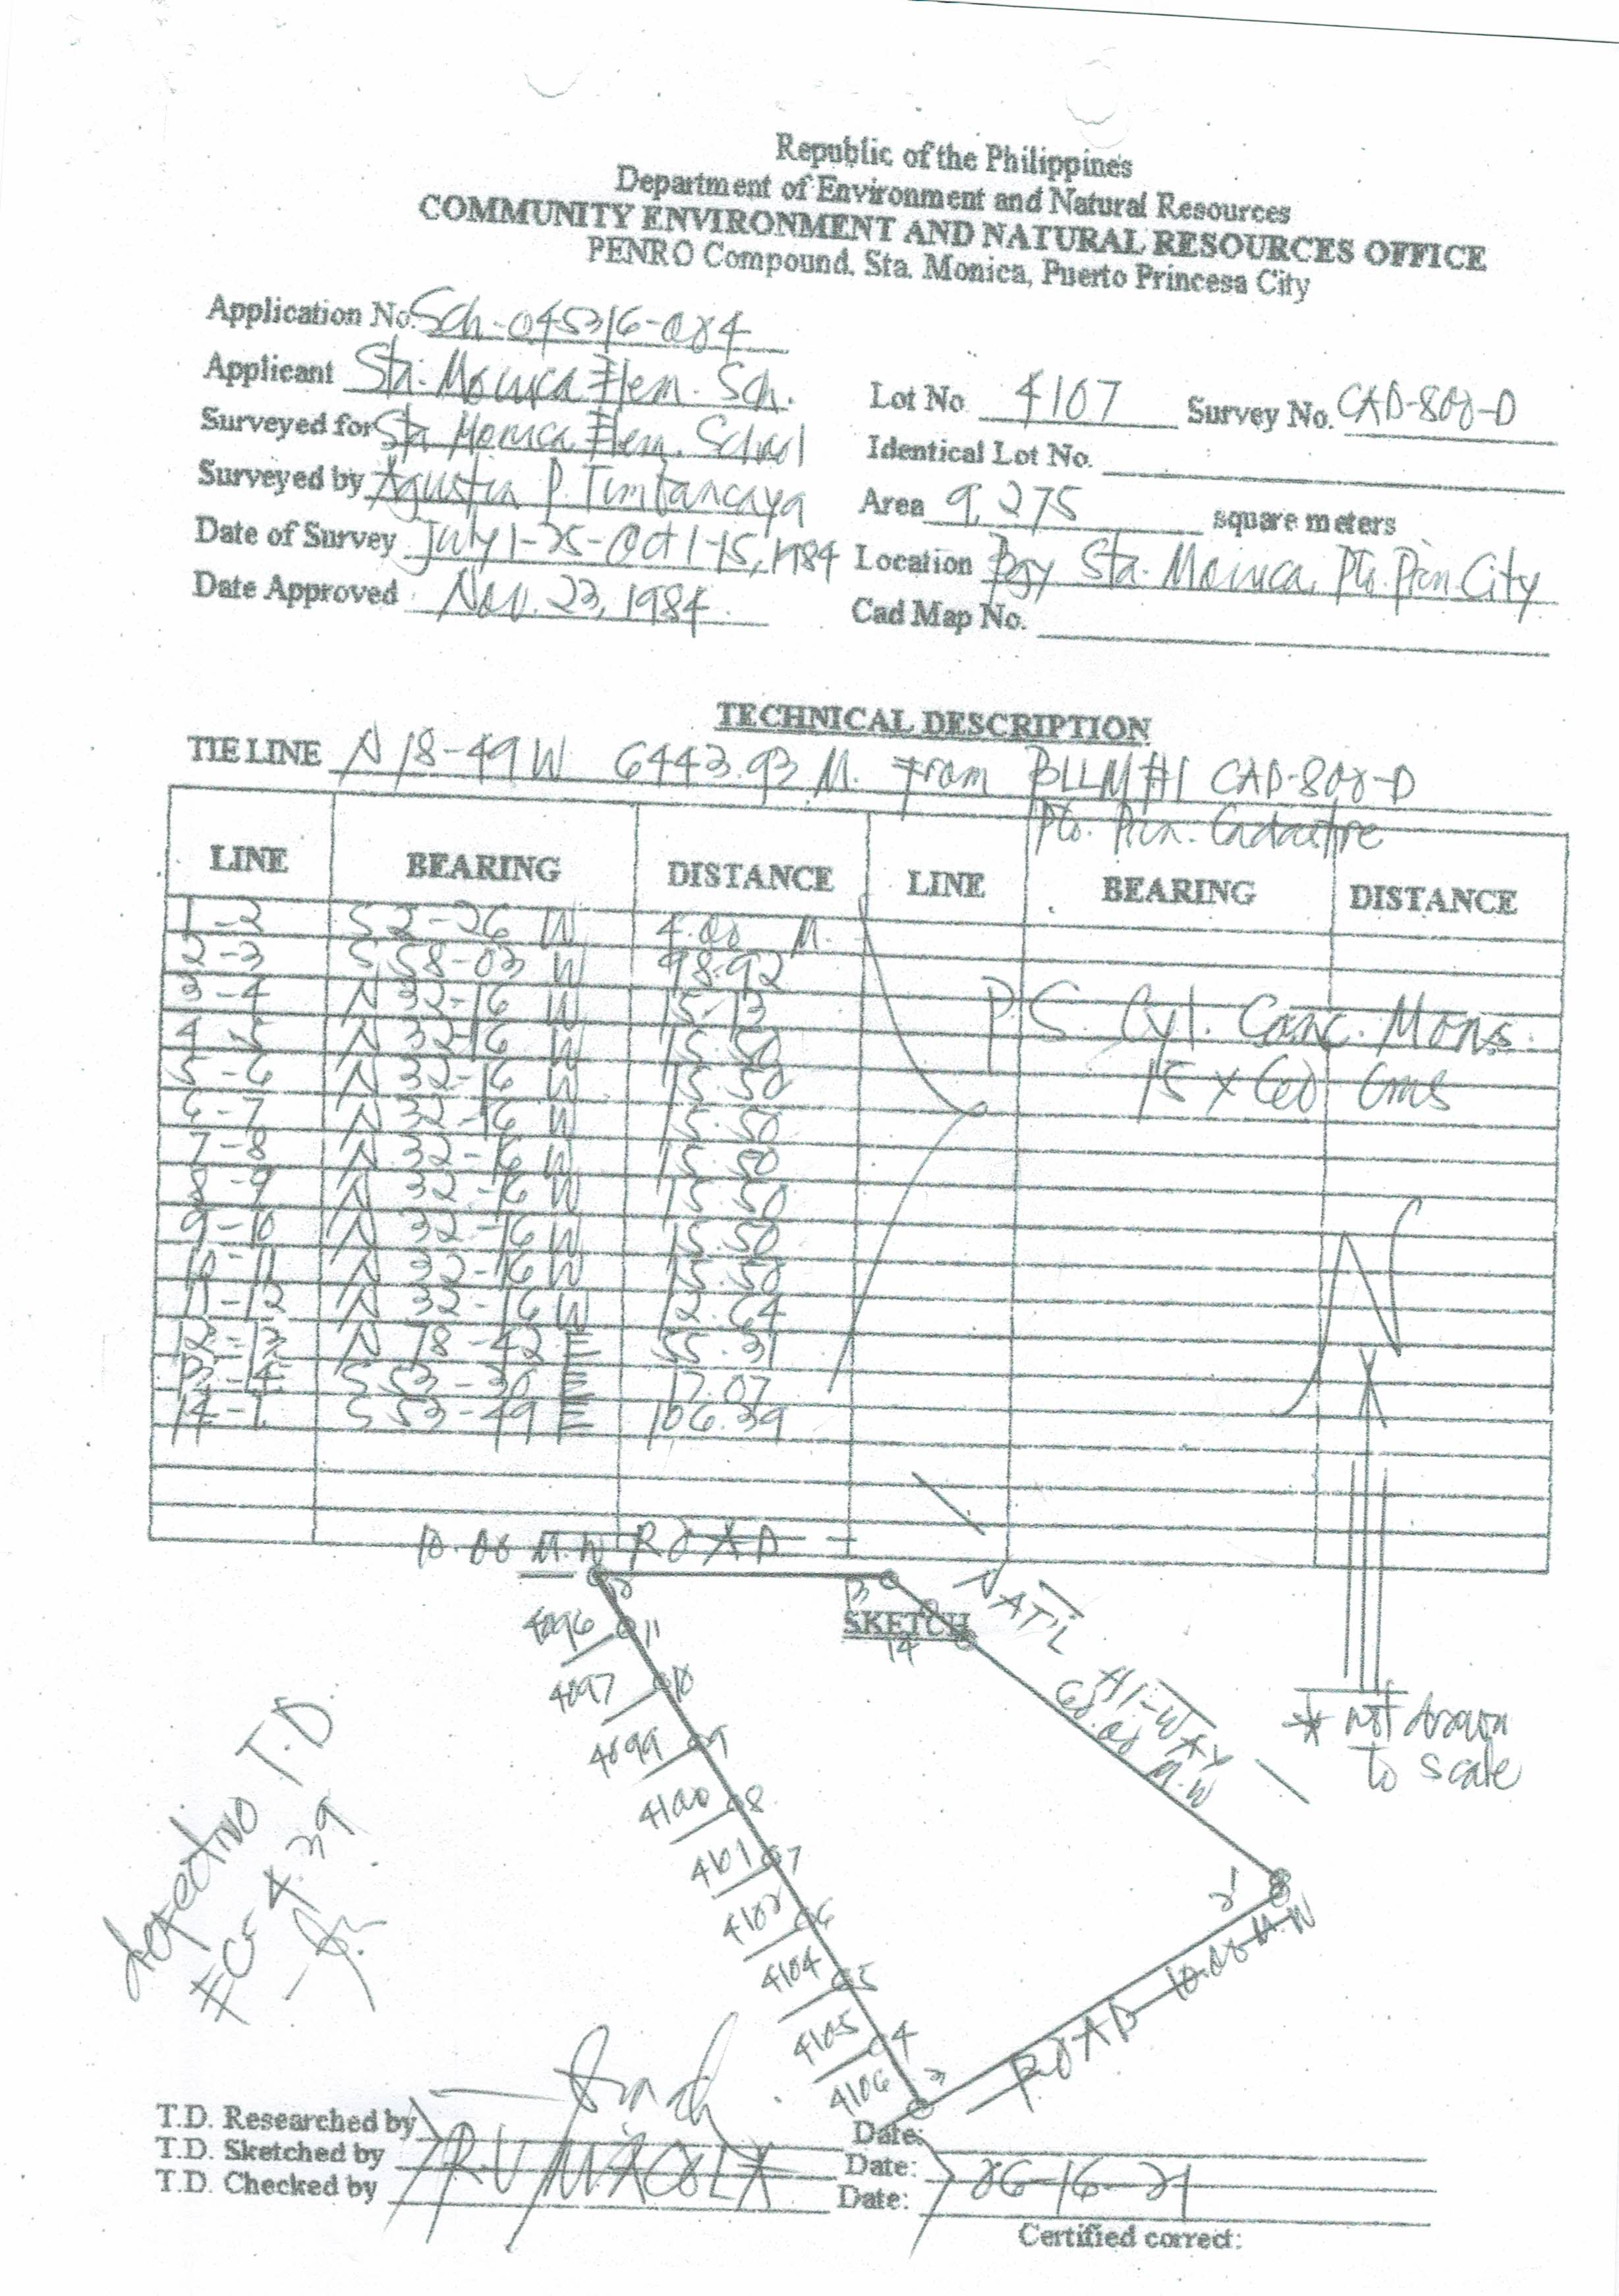 Republic of the Philippines
Department of Environment and Natural Resources
COMMUNITY ENVIRONMENT AND NATURAL RESOURCES OFFICE
PENRO Compound, Sta. Monica, Puerto Princesa City
Application No. Sch-045316-084
Applicant Sta. Monica Elem. Sch.
Lot No 4107 Survey No. CAD-800-D
Surveyed for Sta Monica Elem. School
Identical Lot No.
Surveyed by Agustin P. Timbancaya
Area 9,275 square meters
Date of Survey July 1-25-Oct 1-15, 1984
Location Bgy Sta. Monica, Pto. Prin. City
Date Approved Nov. 23, 1984
Cad Map No.
TECHNICAL DESCRIPTION
TIE LINE N 18-49 W 6443.93 M. From BLLM #1 CAD-800-D
Pto. Prin. Cadastre
LINE BEARING DISTANCE LINE BEARING DISTANCE
1-2 S 2-26 W 4.00 M.
2-3 S 58-03 W 98.92
3-4 N 32-16 W 15.13
4-5 N 32-16 W 15.50
5-6 N 32-16 W 15.50
6-7 N 32-16 W 15.50
7-8 N 32-16 W 15.50
8-9 N 32-16 W 15.50
9-10 N 32-16 W 15.50
10-11 N 32-16 W 15.50
11-12 N 32-16 W 12.64
12-13 N 78-42 E 55.31
13-14 S 53-36 E 17.07
14-1 S 53-49 E 106.39
P.S. Cyl. Conc. Mons.
15 x 60 cms
N
10.00 M.W ROAD
SKETCH
12
13
14
11
10
9
8
7
6
5
4
3
2
4096
4097
4099
4100
4101
4102
4104
4105
4106
NAT'L HI-WAY
60.00 M.W
ROAD 10.00 M.W
* Not drawn
to scale
defective T.D.
EC= 4.39
T.D. Researched by
Date:
T.D. Sketched by R.V MAOLA
Date: 06-16-21
T.D. Checked by
Date:
Certified correct: